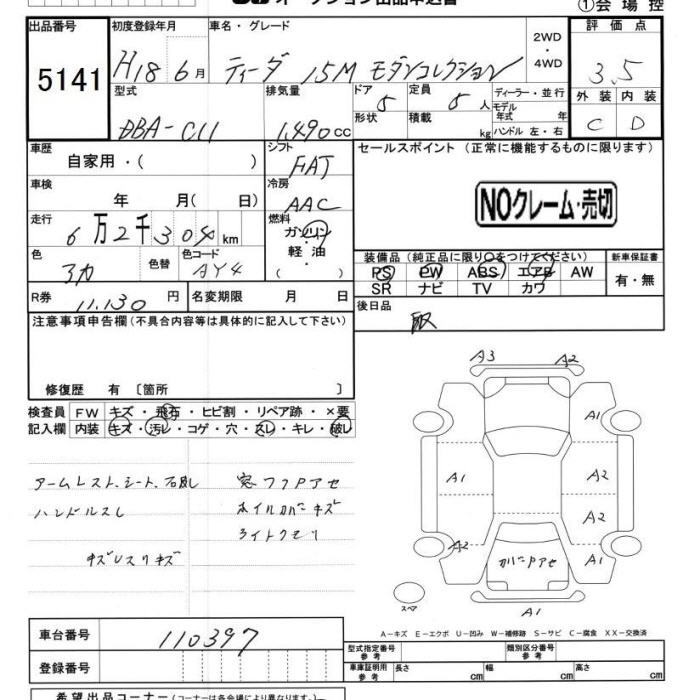 オークション出品申込書
①会場控
出品番号 初度登録年月 車名・グレード 2WD・4WD 評価点
5141 H18 6月 ティーダ 15M モダンコレクション 3.5
型式 排気量 ドア 5 定員 5人 ディーラー・並行 外装 内装
DBA-C11 1,490cc 形状 積載 kg モデル年式 年 ハンドル 左・右 C D
車歴 シフト セールスポイント (正常に機能するものに限ります)
自家用・( ) FAT
車検 冷房
年 月( 日) AAC NOクレーム・売切
走行 燃料
6万2千304km ガソリン
色 色替 色コード 軽・油 装備品(純正品に限り○をつけてください) 新車保証書
AY4 ( ) PS PW ABS エアB AW 有・無
SR ナビ TV カワ
R券 11,130円 名変期限 月 日 後日品
注意事項申告欄(不具合内容等は具体的に記入して下さい) 取
修復歴 有 〔箇所 〕
検査員 FW キズ・飛石・ヒビ割・リペア跡・×要
記入欄 内装 キズ・汚レ・コゲ・穴・スレ・キレ・破レ
A3 A2
A1
アームレスト、シート、 A1 A2
ハンドルスレ ホイルカバーキズ A2
ライトクモリ
A2 A1
スペア A1
A-キズ E-エクボ U-凹み W-補修跡 S-サビ C-腐食 XX-交換済
車台番号 110397
型式指定番号 参考 類別区分番号 参考
登録番号 車庫証明用 参考 長さ cm 幅 cm 高さ cm
希望出品コーナー(コーナーは各会場により異なります。)